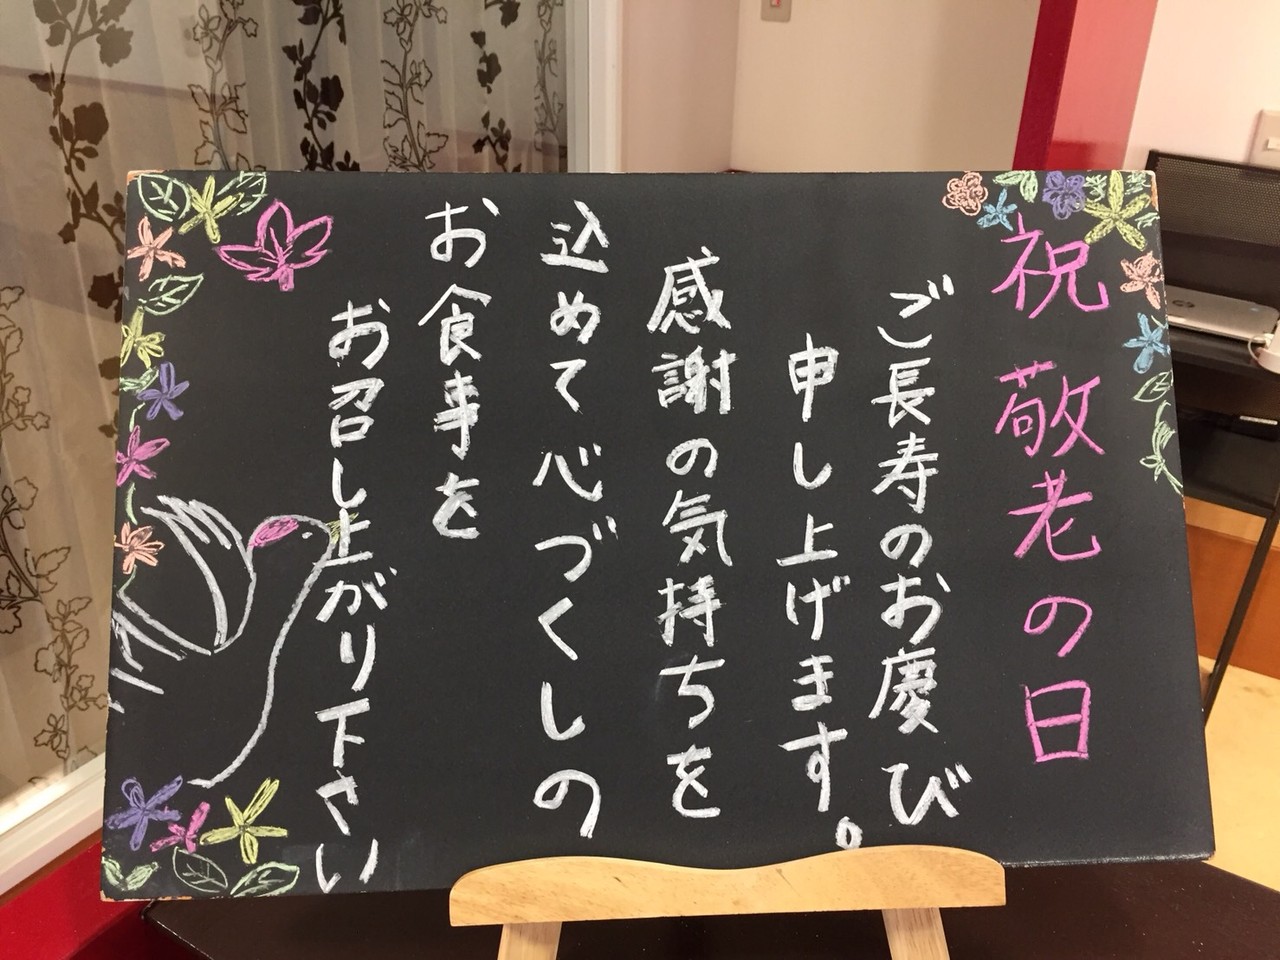 祝 敬老の日
ご長寿のお慶び
申し上げます。
感謝の気持ちを
込めて心づくしの
お食事を
お召し上がり下さい